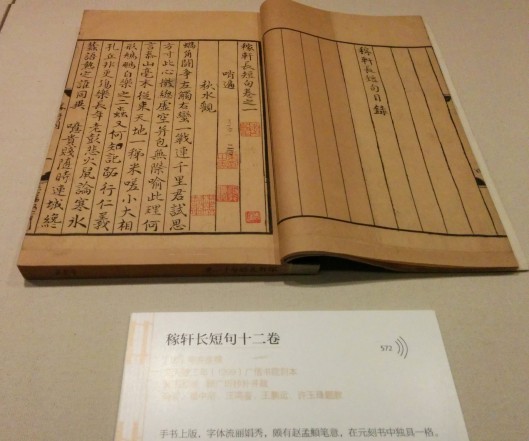 稼軒長短句目録
稼軒長短句卷之一
哨遍
秋水觀
蝸角鬭爭左觸右蠻一戰連千里君試思
方寸此心微總虛空并包無際喻此理何
言泰山毫末從來天地一稊米嗟小大相
形鳩鵬自樂之二蟲又何知記跖行仁義
孔丘非更殤樂長年老彭悲火鼠論寒冰
蠶語熱定誰同異 噫貴賤隨時連城纔
稼轩长短句十二卷
572
手书上版，字体流丽娟秀，颇有赵孟頫笔意，在元刻书中独具一格。